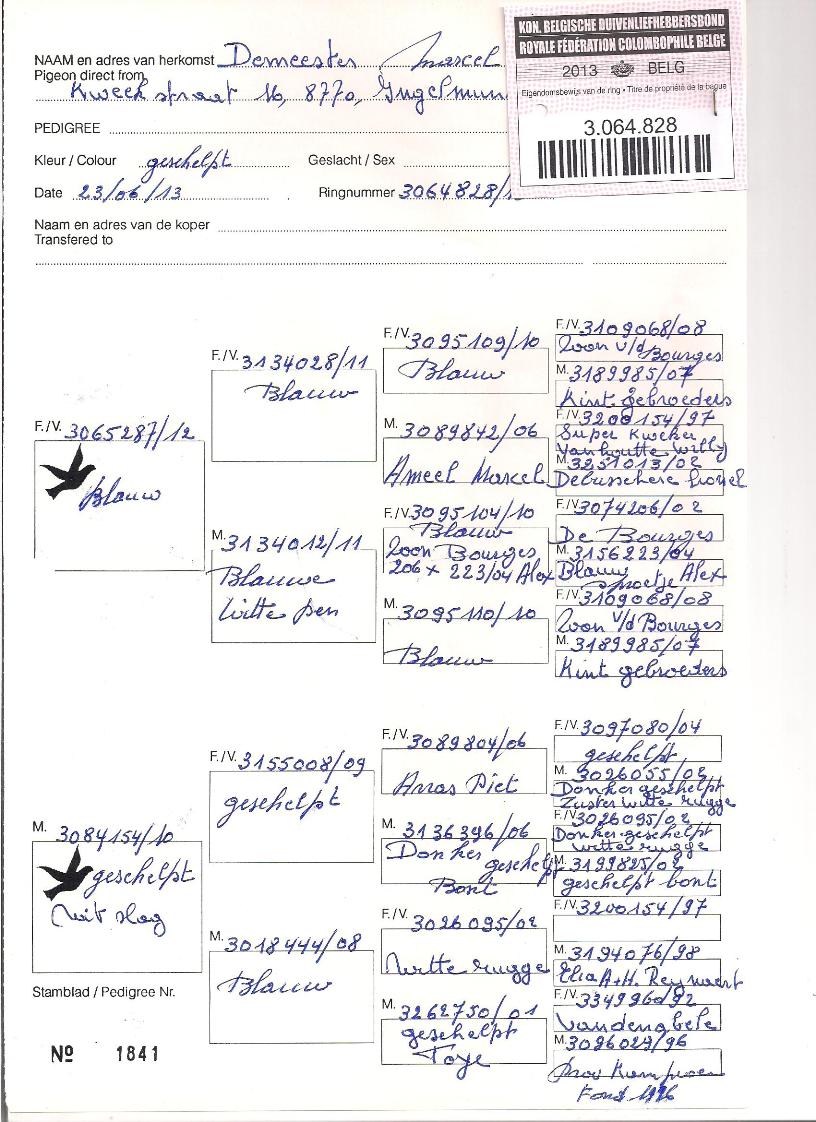 KON. BELGISCHE DUIVENLIEFHEBBERSBOND
ROYALE FÉDÉRATION COLOMBOPHILE BELGE
2013 BELG
Eigendomsbewijs van de ring • Titre de propriété de la bague
3.064.828
NAAM en adres van herkomst Demeester Marcel
Pigeon direct from
Kweekstraat 16, 8770, Ingelmun
PEDIGREE
Kleur / Colour geschelpt Geslacht / Sex
Date 23/06/13 Ringnummer 3064828/1
Naam en adres van de koper
Transfered to
F./V. 3065287/12
Blauw
F./V. 3134028/11
Blauw
M. 3134012/11
Blauwe
witte pen
F./V. 3095109/10
Blauw
M. 3089842/06
Ameel Marcel
F./V. 3095104/10
Blauw
Zoon Bourges
206 x 223/04 Alex
M. 3095110/10
Blauw
F./V. 3109068/08
Zoon v/d Bourges
M. 3189985/07
Kint gebroeders
F./V. 3200154/97
Super Kweker
Vanhoutte Willy
M. 3251013/02
Debusschere Lionel
F./V. 3074206/02
De Bourges
M. 3156223/04
Blauw
sproetje Alex
F./V. 3109068/08
Zoon v/d Bourges
M. 3189985/07
Kint gebroeders
M. 3084154/10
geschelpt
Wit slag
F./V. 3155008/09
geschelpt
M. 3018444/08
Blauw
F./V. 3089804/06
Arras Piet
M. 3136396/06
Donker geschelpt
Bont
F./V. 3026095/02
Witte rugge
M. 3262750/01
geschelpt
Toye
F./V. 3097080/04
geschelpt
M. 3026055/02
Donker geschelpt
Zuster witte rugge
F./V. 3026095/02
Donker geschelpt
witte rugge
M. 3199825/02
geschelpt bont
F./V. 3200154/97
M. 3194076/98
Elia A+H. Reynaert
F./V. 3349960/92
Vandenabele
M. 3096029/96
Prov Kampioen
Fond 1996
Stamblad / Pedigree Nr.
Nº 1841